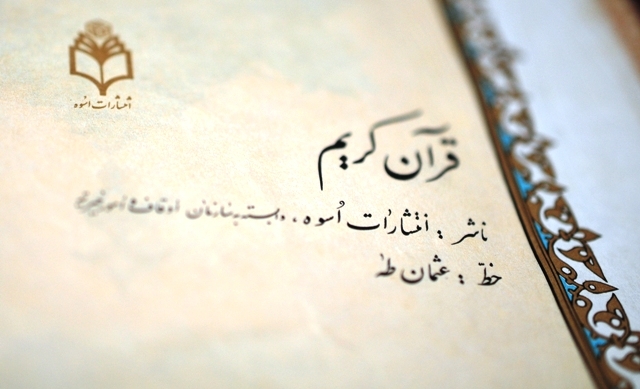 انتشارات اسوه
قرآن کریم
ناشر : انتشارات اُسوه ، وابسته به سازمان اوقاف و امور خیریه
خطّ : عثمان طه